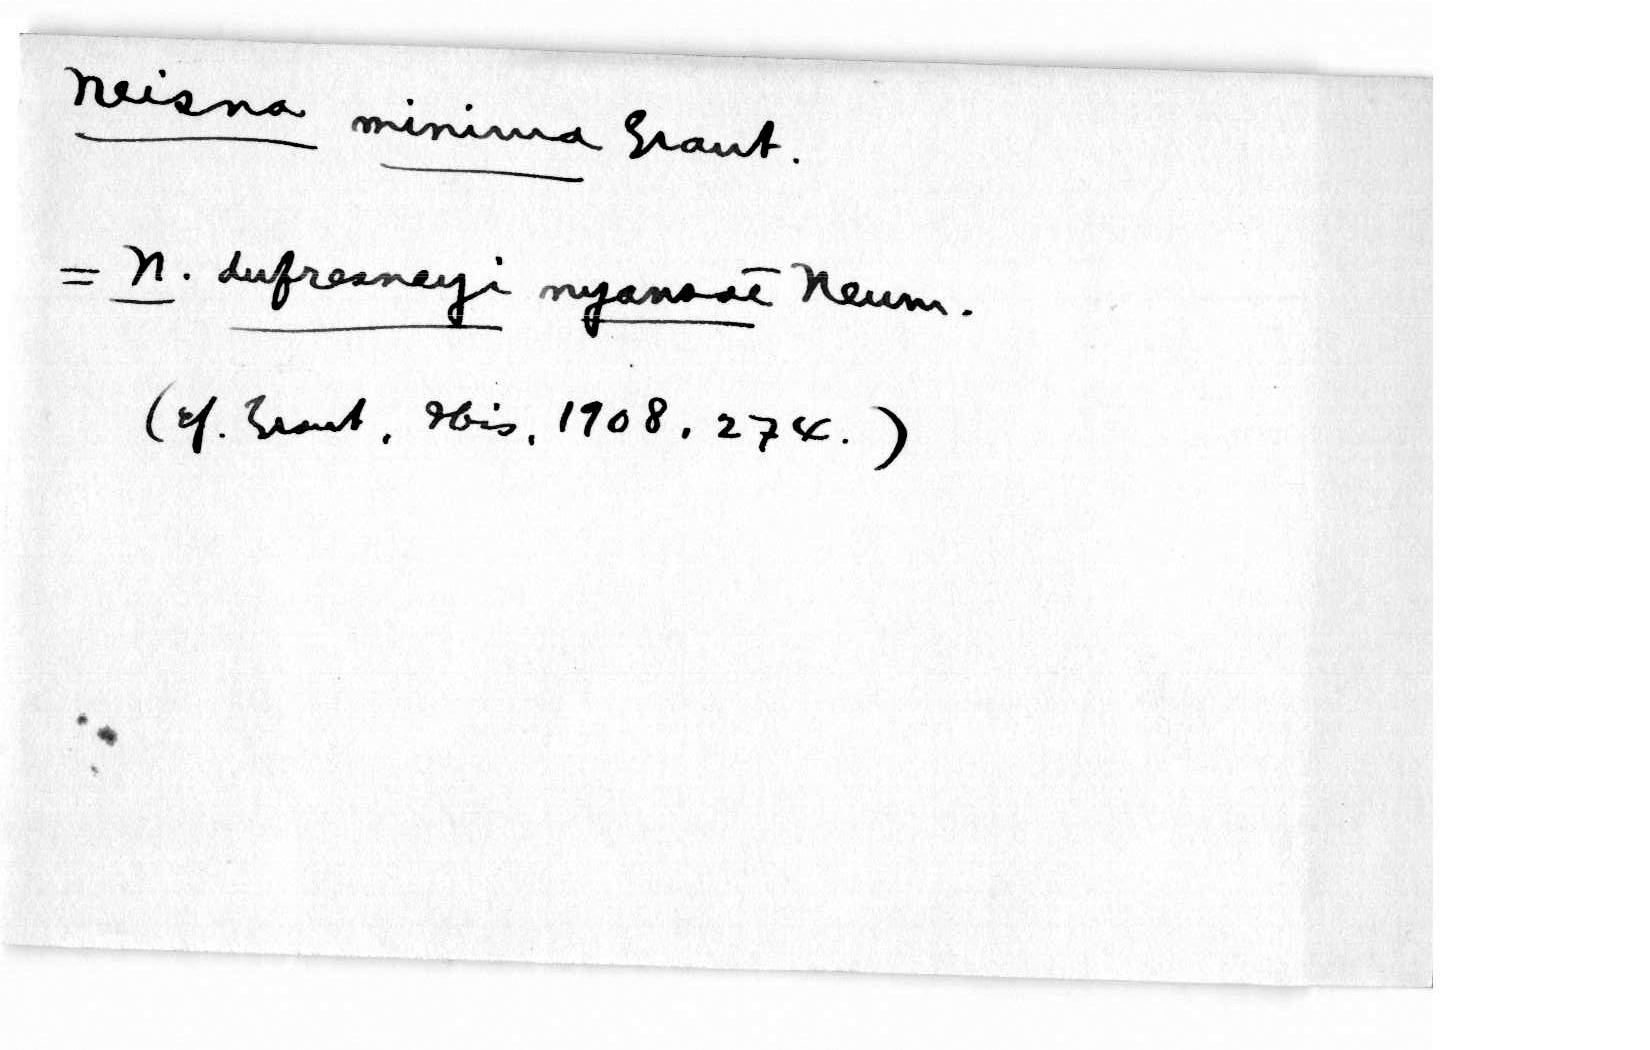 Neisna minima Grant.
= N. dufresneyi nyansae Neum.
(cf. Grant, Ibis, 1908, 274.)